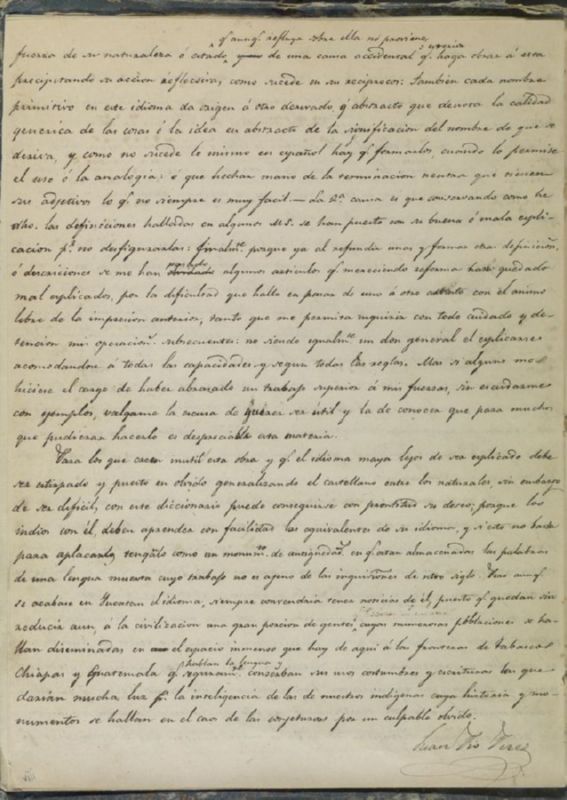 q.e aunq.e refluya sobre ella no proviene
fuerza de su naturaleza ó estado, de una causa accidental q.e haga obrar á esta
precipitando su accion reflecsiva, como sucede en su reciproco: tambien cada nombre
primitivo en este idioma da origen á otro derivado, q.e abstracto que denota la calidad
generica de las cosas ó la idea en abstracto de la significacion del nombre de que se
deriva, y como no sucede lo mismo en español hay q.e formarlos cuando lo permite
el uso ó la analogia: ó que hechar mano de la terminacion neutra que tienen
sus adjetivos lo q.e no siempre es muy facil.— La causa es que conservando como he
dho. las definiciones halladas en algunos M.S. se han puesto con su buena ó mala expli-
cacion p.r no desfigurarlas: finalm.te porque ya al refundir unas y formar otras definiciones
ó descriciones se me han algunos articulos q.e mereciendo reforma han quedado
mal explicados, por la dificultad que halla en pasar de uno á otro con el animo
libre de la impresion anterior, tanto que me permita seguirla con todo cuidado y de-
tencion mis operacion.s subsecuentes: no siendo igualm.te un don general el explicarse
acomodandose á todas las capacidades y segun todas las reglas. Mas si alguno me
hiciese el cargo de haber abrazado un trabajo superior á mis fuerzas, sin escudarme
con ejemplos, valgame la escusa de querer ser útil y la de conocer que para muchos
que pudieran hacerlo es despreciable esta materia.
Para los que crean inutil esta obra y q.e el idioma maya lejos de ser explicado debe
ser estirpado y puesto en olvido generalizando el castellano entre los naturales, sin embargo
de ser dificil, con este diccionario puede conseguirse con prontitud su deseo; porque los
indios con él, deben aprender con facilidad los equivalentes de su idioma, y si esto no basta
para aplacarlos, tenganlo como un monum.to de antigüedad en q.e estan almacenadas las palabras
de una lengua muerta cuyo trabajo no es ageno de las inquisiciones de ntro siglo. Mas aunq.e
se acabase en Yucatan el idioma, siempre convendria tener noticias de él, puesto q.e quedan sin
reducir aun, á la civilizacion una gran porcion de gentes, cuyas numerosas poblaciones se ha-
llan diseminadas en el espacio inmenso que hay de aqui á las fronteras de Tabasco
hablan la lengua y
Chiapas y Guatemala q.e conservan sus usos costumbres y escrituras los que
darian mucha luz p.a la inteligencia de las de nuestros indigenas cuya historia y mo-
numentos se hallan en el caos de las conjeturas por un culpable olvido.
Juan Pio Perez